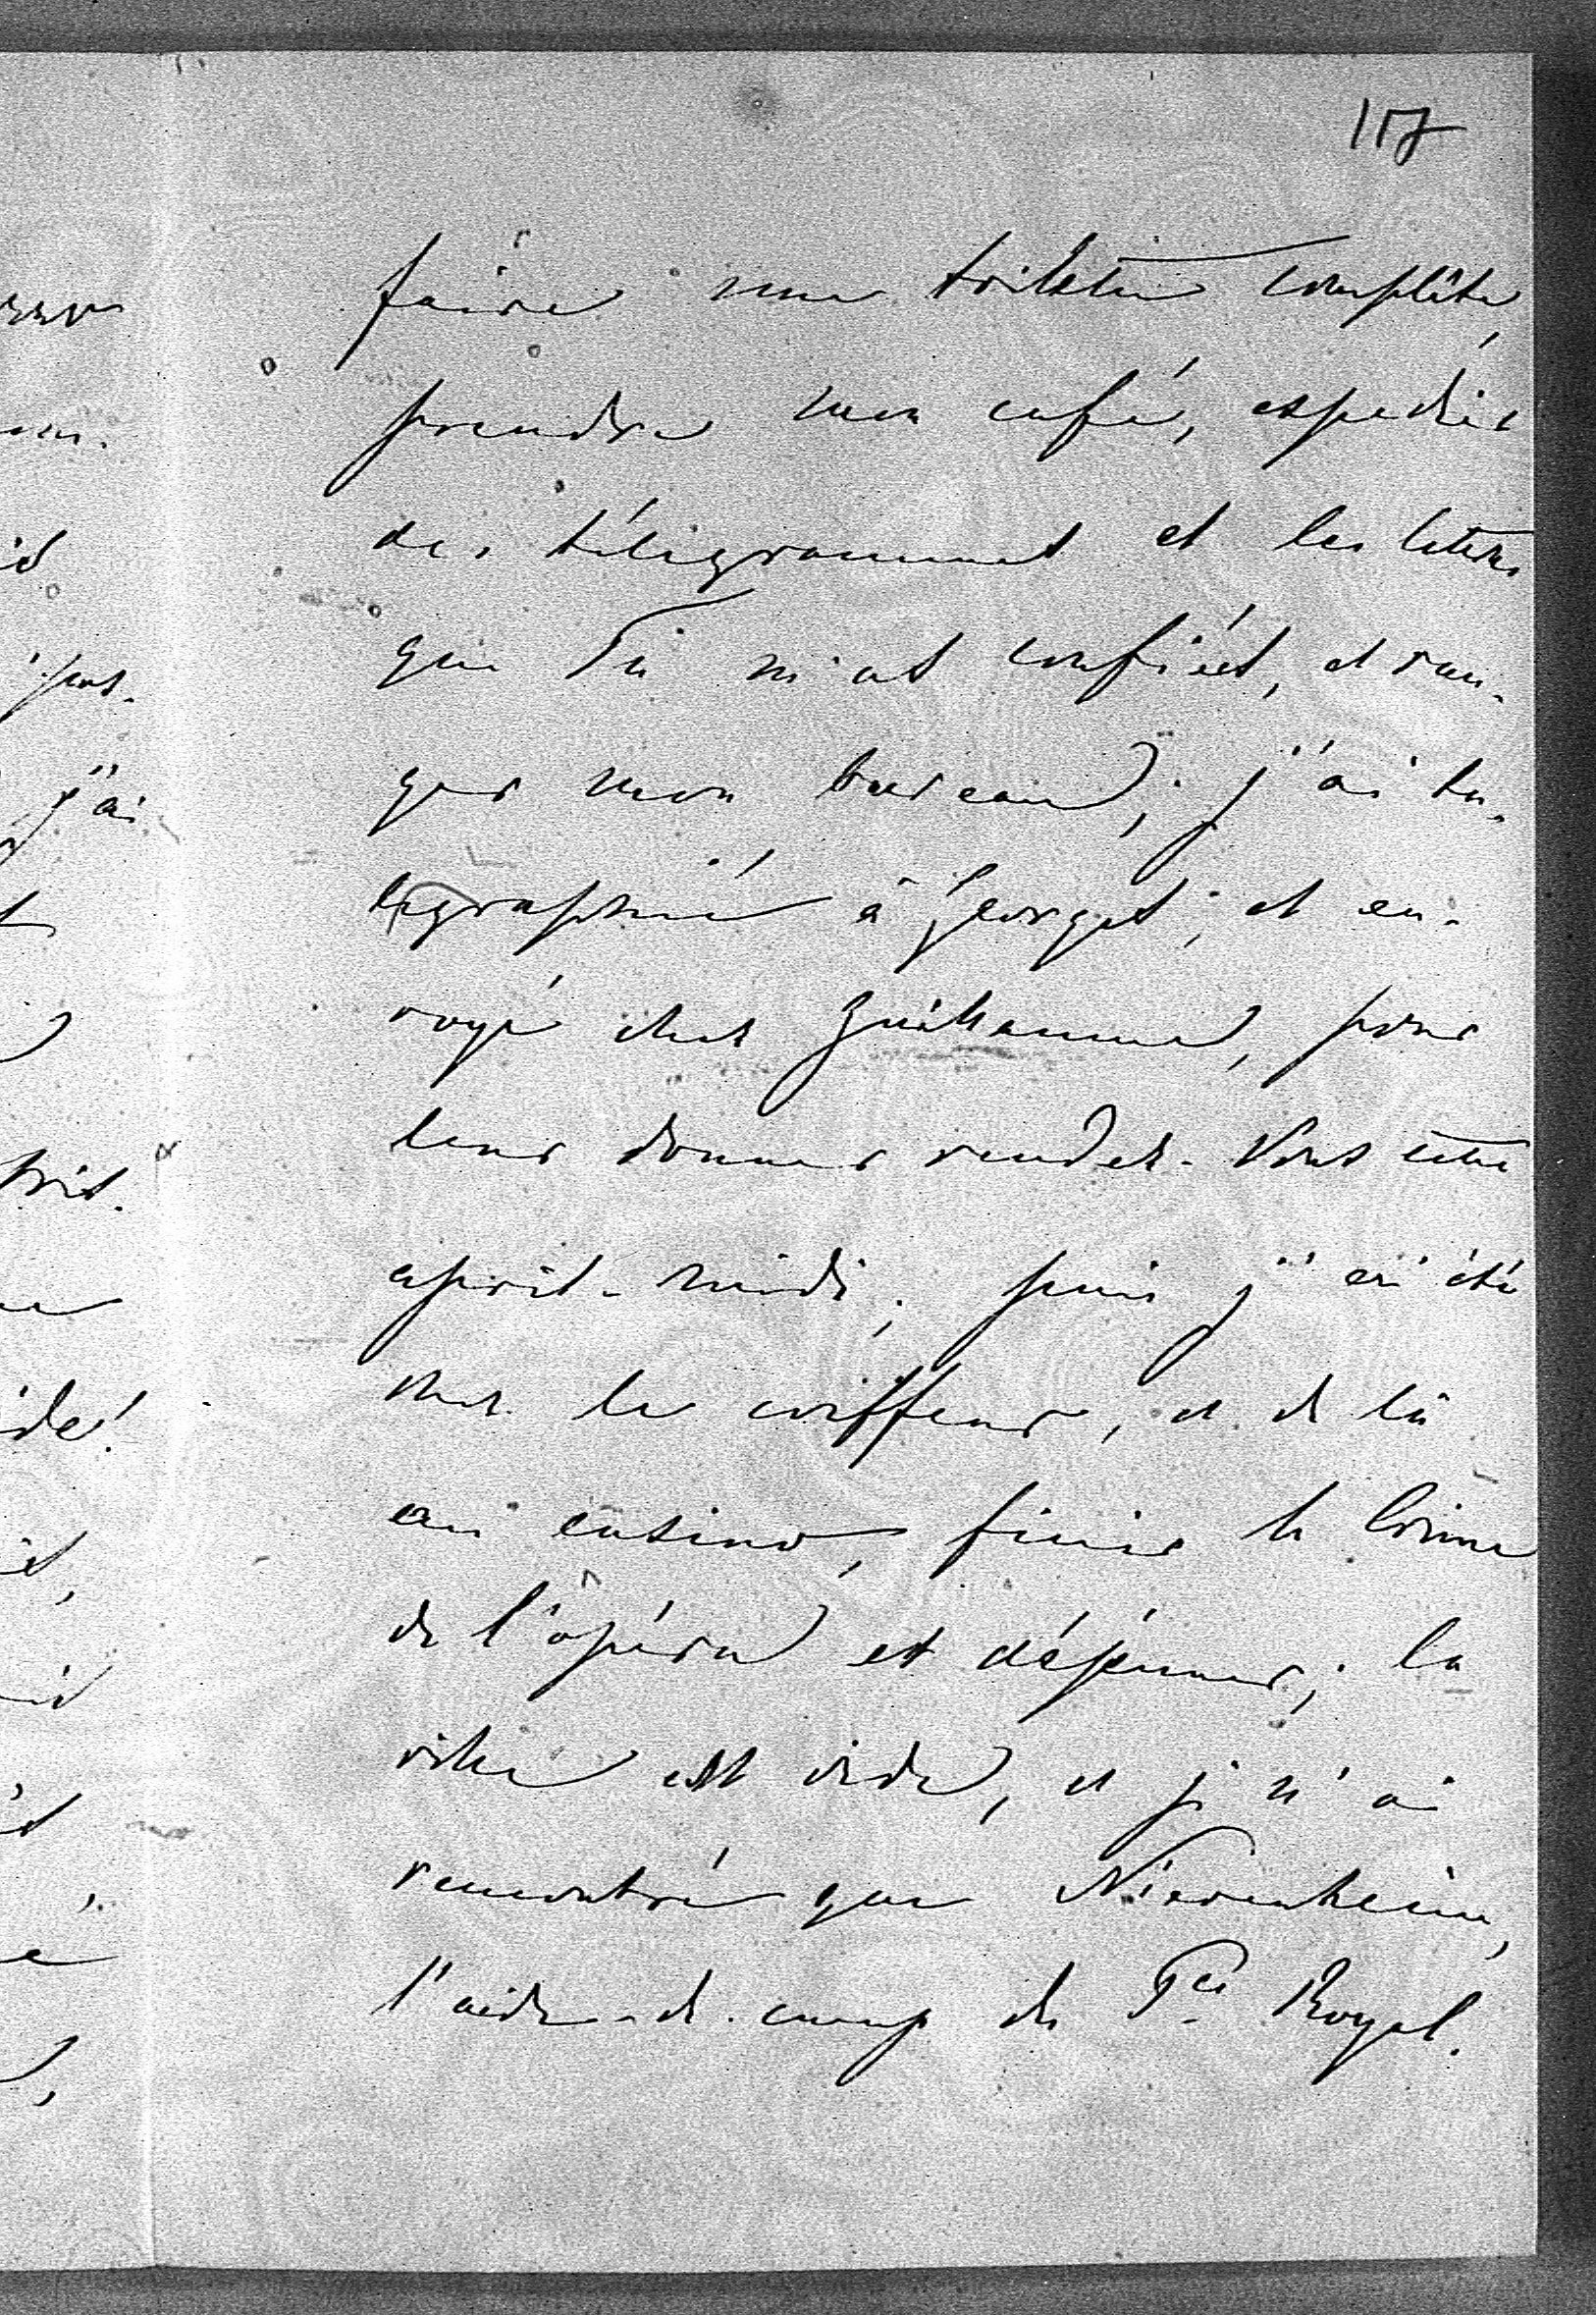 117
faire une toilette complète,
prendre mon café, expedier
des télégrammes et les lettres
que Tu m'as confiées, et ran-
ger mon bureau; j'ai te-
legraphié à Georges, et en-
voyé chez Guillaume, pour
leur donner rendez-vous cette
après-midi; puis j'ai été
chez le coiffeur, et de là
au casino, finir le Crime
de l'opéra et déjeuner; la
ville est vide, et je n'ai
rencontré que Nierenheim,
l'aide-de-camp du Pce Royal.
j'ai